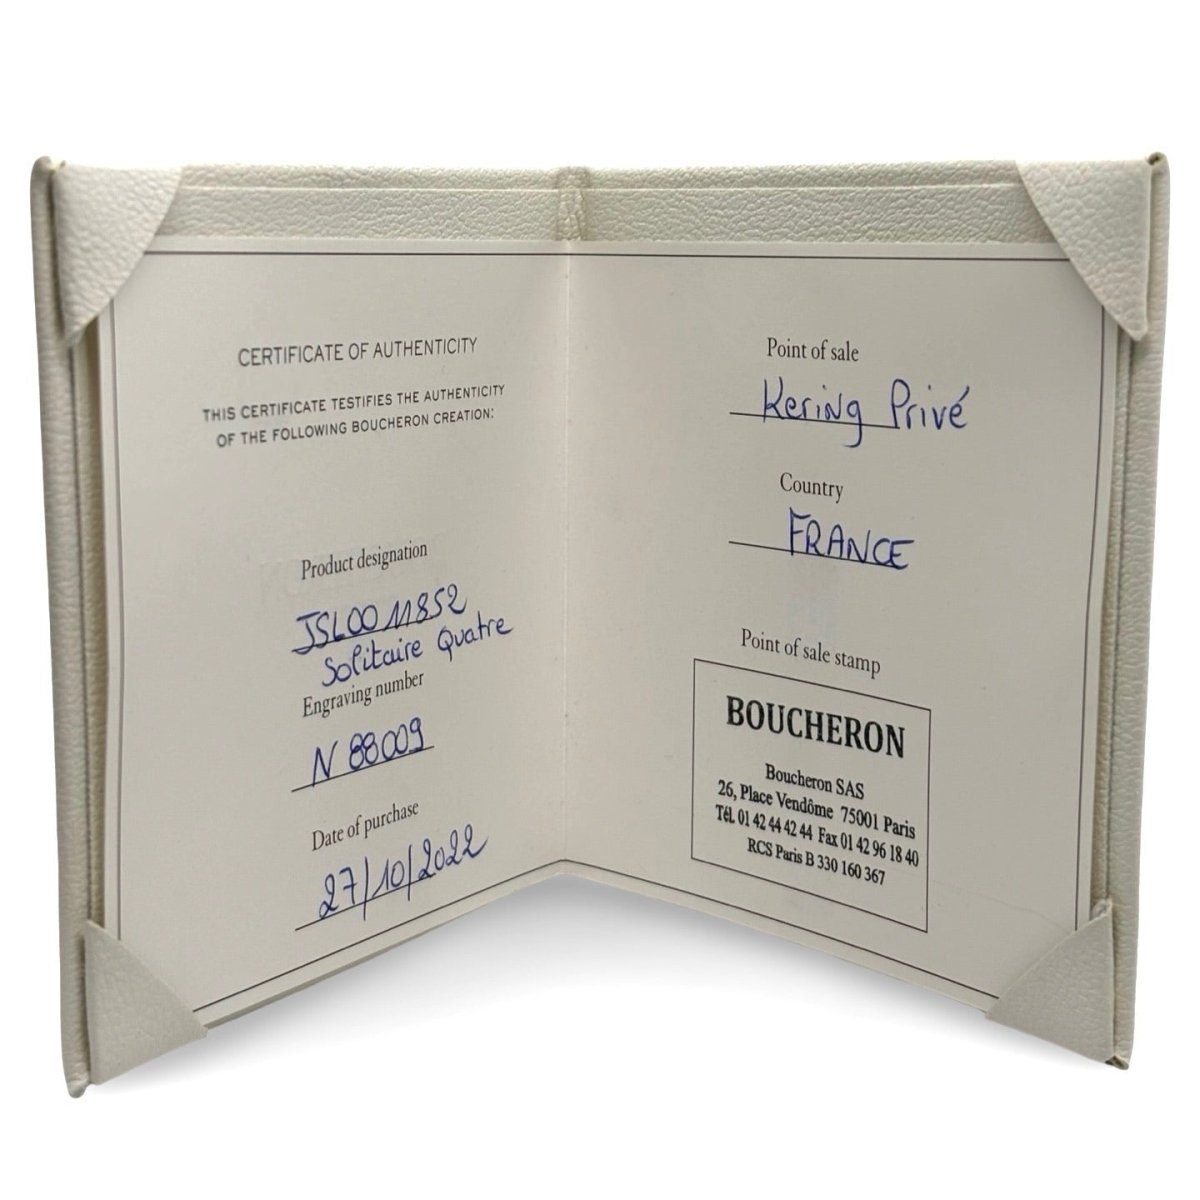 CERTIFICATE OF AUTHENTICITY
THIS CERTIFICATE TESTIFIES THE AUTHENTICITY
OF THE FOLLOWING BOUCHERON CREATION:
Product designation
JSL00 11852
Solitaire Quatre
Engraving number
N 88009
Date of purchase
27/10/2022
Point of sale
Kering Privé
Country
FRANCE
Point of sale stamp
BOUCHERON
Boucheron SAS
26, Place Vendôme 75001 Paris
Tél. 01 42 44 42 44 Fax 01 42 96 18 40
RCS Paris B 330 160 367